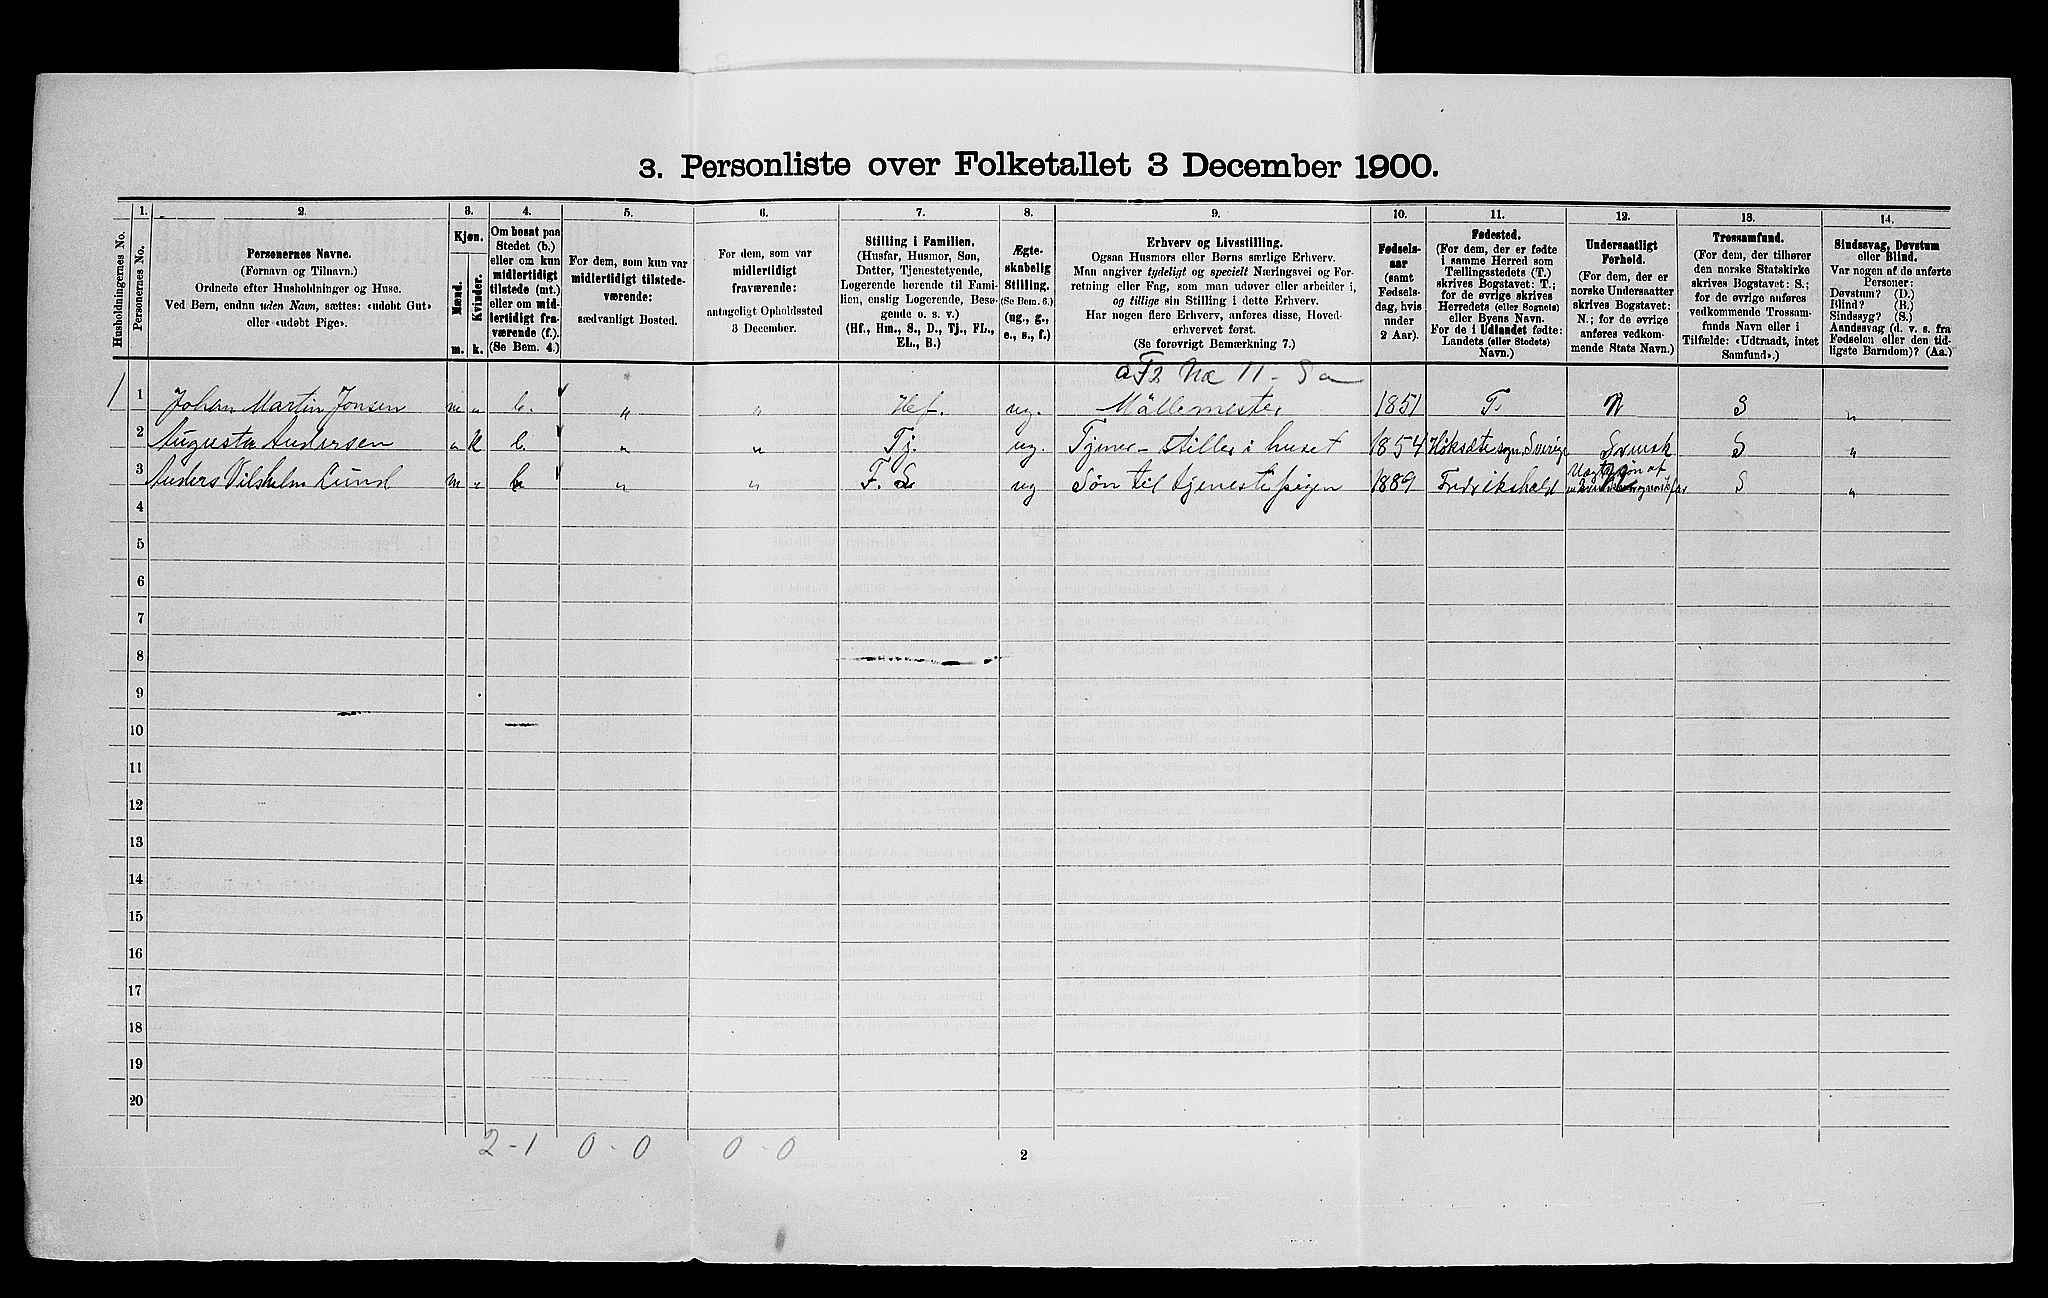 3. Personliste over Folketallet 3 December 1900.
Husholdningernes No.
1.
Personernes No.
2.
Personernes Navne.
(Fornavn og Tilnavn.)
Ordnede efter Husholdninger og Huse.
Ved Børn, endnu uden Navn, sættes: «udøbt Gut»
eller «udøbt Pige».
3.
Kjøn.
Mænd.
m.
Kvinder.
k.
4.
Om bosat paa
Stedet (b.)
eller om kun
midlertidigt
tilstede (mt.)
eller om mid-
lertidigt fra-
værende (f.)
(Se Bem. 4.)
5.
For dem, som kun var
midlertidigt tilstede-
værende:
sædvanligt Bosted.
6.
For dem, som var
midlertidigt
fraværende:
antageligt Opholdssted
3 December.
7.
Stilling i Familien.
(Husfar, Husmor, Søn,
Datter, Tjenestetyende,
Logerende hørende til Fami-
lien, enslig Logerende, Besø-
gende o. s. v.)
(Hf., Hm., S., D., Tj., FL.,
EL., B.)
8.
Ægte-
skabelig
Stilling.
(Se Bem. 6.)
(ug., g.,
e., s., f.)
9.
Erhverv og Livsstilling.
Ogsaa Husmors eller Børns særlige Erhverv.
Man angiver tydeligt og specielt Næringsvei og For-
retning eller Fag, som man udøver eller arbeider i,
og tillige sin Stilling i dette Erhverv.
Har nogen flere Erhverv, anføres disse, Hoved-
erhvervet først.
(Se forøvrigt Bemærkning 7.)
10.
Fødsels-
aar
(samt
Fødsels-
dag, hvis
under
2 Aar).
11.
Fødested.
(For dem, der er fødte
i samme Herred som
Tællingsstedets (T.)
skrives Bogstavet: T.;
for de øvrige skrives
Herredets (eller Sognets)
eller Byens Navn.
For de i Udlandet fødte:
Landets (eller Stedets)
Navn.)
12.
Undersaatligt
Forhold.
(For dem, der er
norske Undersaatter
skrives Bogstavet:
N.; for de øvrige
anføres vedkom-
mende Stats Navn.)
13.
Trossamfund.
(For dem, der tilhører
den norske Statskirke
skrives Bogstavet: S.;
for de øvrige anføres
vedkommende Trossam-
funds Navn eller i
Tilfælde: «Udtraadt, intet
Samfund».)
14.
Sindssvag, Døvstum
eller Blind.
Var nogen af de anførte
Personer:
Døvstum? (D.)
Blind? (B.)
Sindssyg? (S.)
Aandssvag (d. v. s. fra
Fødselen eller den tid-
ligste Barndom)? (Aa.)
1 1 Johan Martin Jonsen m „ b. „ „ Hf. ug. Møllemester 1851 T. N S „
2 Augusta Andersen „ k b. „ „ Tj. ug. Tjener - stiller i huset 1854 Sverige Svensk S „
3 Anders Vilshelm Lund m „ b „ „ F. ug Søn til tjenestepigen 1889 Fredrikshald S „
4
5
6
7
8
9
10
11
12
13
14
15
16
17
18
19
20
2-1 0-0 0-0
2